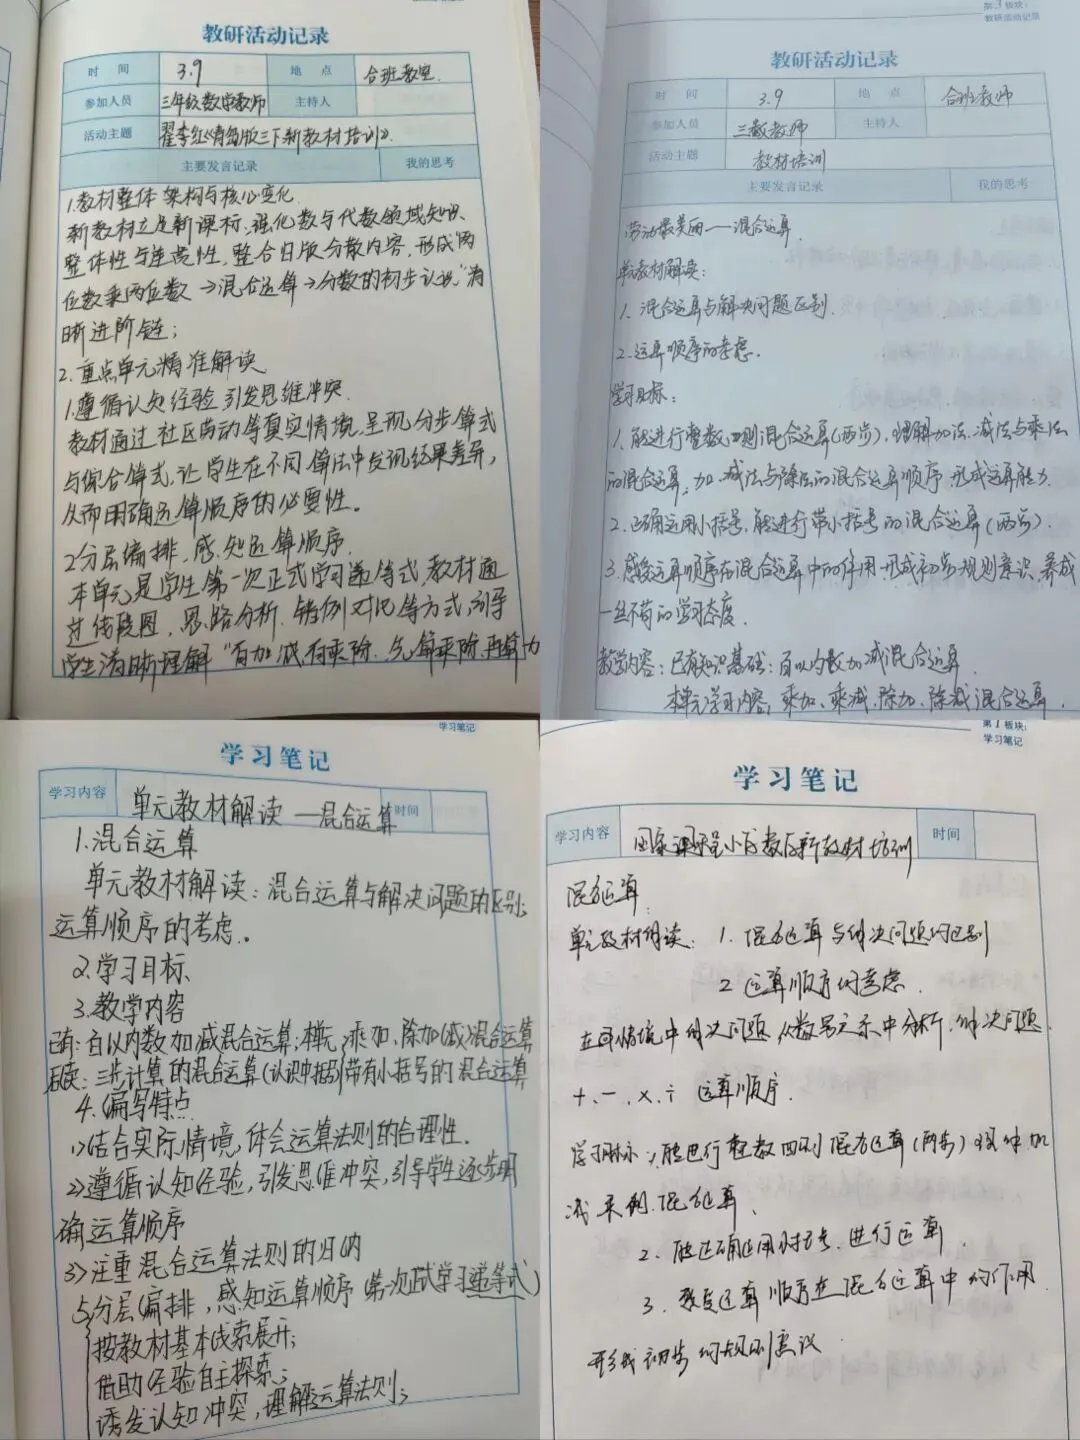 教研活动记录
时 间 3.9 地 点 合班教室
参加人员 三年级数学教师 主持人
活动主题 翟李红《青岛版三下新教材培训》.
主要发言记录 我的思考
1.教材整体架构与核心变化
新教材立足新课标,强化数与代数领域知识、
整体性与连贯性,整合旧版分散内容,形成"两
位数乘两位数→混合运算→分数的初步认识"清
晰进阶链;
2.重点单元精准解读
1.遵循认知经验,引发思维冲突.
教材通过社区劳动等真实情境,呈现分步算式
与综合算式,让学生在不同算法中发现结果差异,
从而明确运算顺序的必要性。
2分层编排,感知运算顺序.
本单元是学生第一次正式学习递等式,教材通
过线段图,思路分析,错例对比等方式,引导
学生清晰理解"有加减,有乘除,先算乘除,再算加
第3板块:
教研活动记录
教研活动记录
时 间 3.9 地 点 合班教师
参加人员 三数教师 主持人
活动主题 教材培训
主要发言记录 我的思考
劳动最美丽——混合运算.
单元教材解读:
1、混合运算与解决问题区别.
2.运算顺序的考虑.
学习目标:
1.能进行整数四则混合运算(两步),理解加法、减法与乘法
的混合运算,加、减法与除法的混合运算顺序,形成运算能力.
2.正确运用小括号,能进行带小括号的混合运算(两步).
3.感受运算顺序在混合运算中的作用,形成初步规则意识,养成
一丝不苟的学习态度.
教学内容:已有知识基础:百以内数加减混合运算.
本单元学习内容:乘加、乘减、除加、除减混合运算.
学习笔记
学习笔记
学习内容 单元教材解读 —混合运算 时间
1.混合运算
单元教材解读:混合运算与解决问题的区别;
运算顺序的考虑.
2.学习目标
3.教学内容
已有:百以内数加减混合运算;本单元:乘加、除加(减)混合运算
后续:三步计算的混合运算(认识中括号)带有小括号的混合运算
4.编写特点
1)结合实际情境,体会运算法则的合理性.
2)遵循认知经验,引发思维冲突,引导学生逐步明
确运算顺序
3)注重混合运算法则的归纳
5)分层编排,感知运算顺序(第一次正式学习递等式)
按教材基本线索展开;
借助经验自主探索;
诱发认知冲突,理解运算法则;
第1板块:
学习笔记
学习笔记
学习内容 国家课程小学数学新教材培训 时间
混合运算
单元教材解读: 1.混合运算与解决问题的区别
2 运算顺序的考虑.
在具情境中解决问题,从数量关系中分析,解决问题.
+、-、×、÷ 运算顺序.
学习目标:1,能进行整数四则混合运算(两步)
混合运算、
2.能正确运用小括号,进行运算.
3.感受运算顺序在混合运算中的作用
形成初步的规则意识